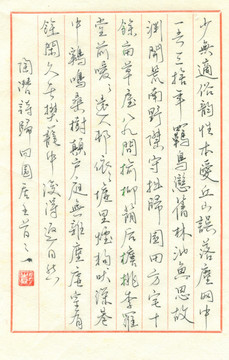 少無適俗韻性本愛丘山誤落塵网中
一去三拾年羈鳥戀舊林池魚思故
淵開荒南野際守拙歸園田方宅十
餘亩草屋八九間榆柳蔭后檐桃李羅
堂前曖曖遠人邨依依墟里煙狗吠深巷
中鷄鳴桑樹顛户庭無雜塵虛室有
餘閑久在樊籠中復得返自然
陶潛詩歸田園居五首之一